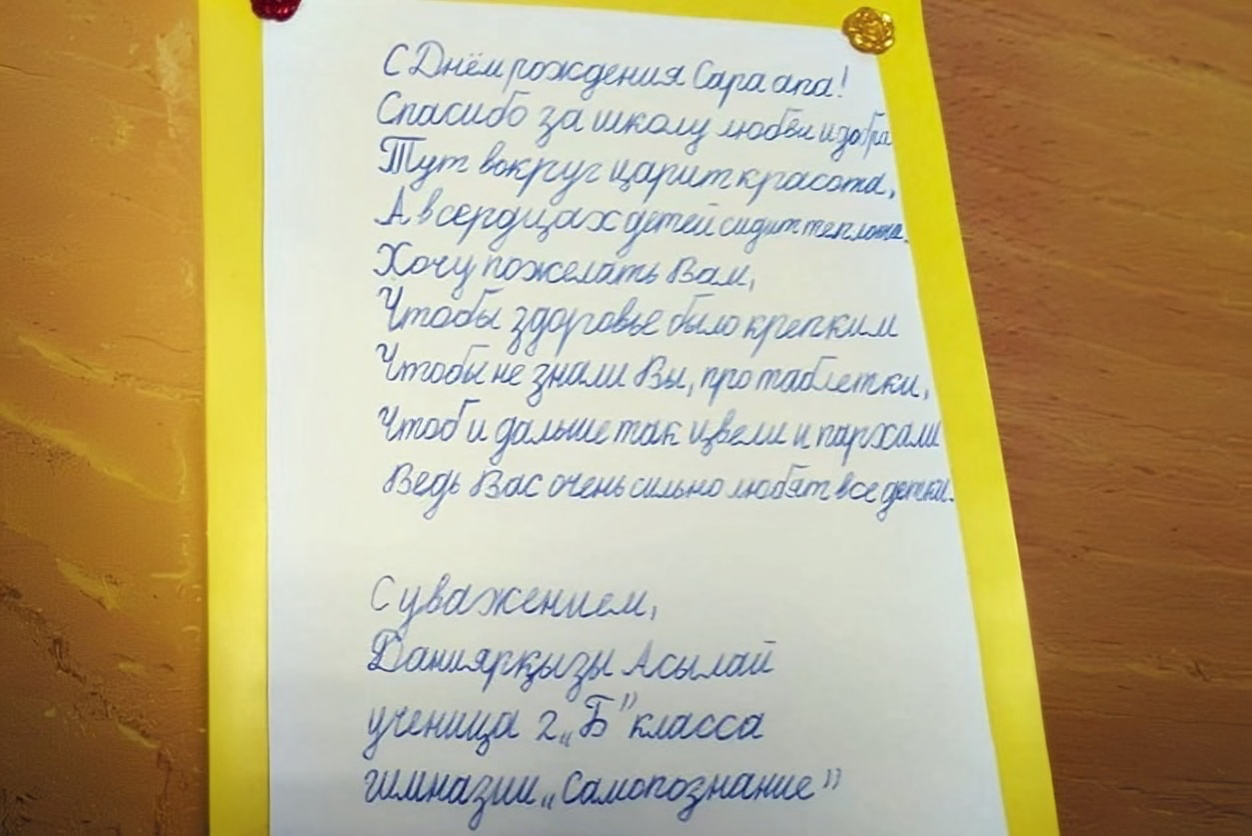 С Днём рождения Сара апа!
Спасибо за школу любви и добра
Тут вокруг царит красота,
А в сердцах детей сидит теплота.
Хочу пожелать Вам,
Чтобы здоровье было крепким
Чтобы не знали Вы, про таблетки,
Чтоб и дальше так цвели и пархали
Ведь Вас очень сильно любят все детки.
С уважением,
Даниярқызы Асылай
ученица 2 „Б” класса
гимназии „Самопознание”